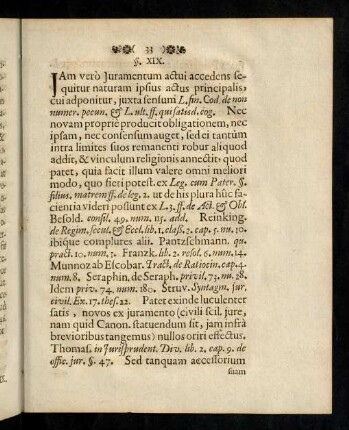 33
§. XIX.
JAm verò Juramentum actui accedens se-
quitur naturam ipsius actus principalis,
cui adponitur, juxta sensum L. fin. Cod. de non
numer. pecun. & L. ult. ff. qui satisd. cog. Nec
novam propriè producit obligationem, nec
ipsam, nec consensum auget, sed ei tantùm
intra limites suos remanenti robur aliquod
addit, & vinculum religionis annectit: quod
patet, quia facit illum valere omni meliori
modo, quo fieri potest. ex Leg. cum Pater. §.
filius. matrem ff. de leg. 2. ut de his plura hûc fa-
cientia videri possunt ex L. 3. ff. de Act. & Obl.
Besold. consil. 49. num. 115. add. Reinking.
de Regim. secul. & Eccl. lib. 1. class. 2. cap. 5. nu. 10.
ibique complures alii. Pantzschmann. qu.
pract. 10. num. 3. Franzk. lib. 2. resol. 6. num. 14.
Munnoz ab Escobar. Tract. de Ratiocin. cap. 4.
num. 8. Seraphin. de Seraph. privil. 73. nu. 28.
Idem priv. 74. num. 180. Struv. Syntagm. jur.
civil. Ex. 17. thes. 22. Patet exinde luculenter
satis, novos ex juramento (civili scil. jure,
nam quid Canon. statuendum sit, jam infrà
brevioribus tangemus) nullos oriri effectus.
Thomas. in Jurisprudent. Div. lib. 2. cap. 9. de
offic. jur. §. 47. Sed tanquam accessorium
suam